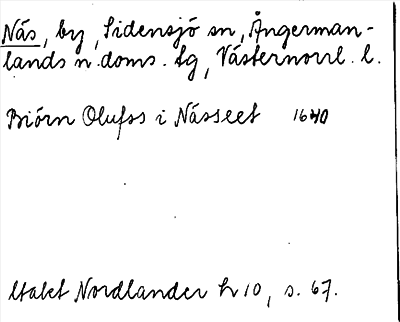 Näs, by, Sidensjö sn, Ångerman-
lands n. doms. tg, Västernorrl. l.
Biörn Olufss i Nässeet 1640
Utakt Nordlander h 10, s. 67.